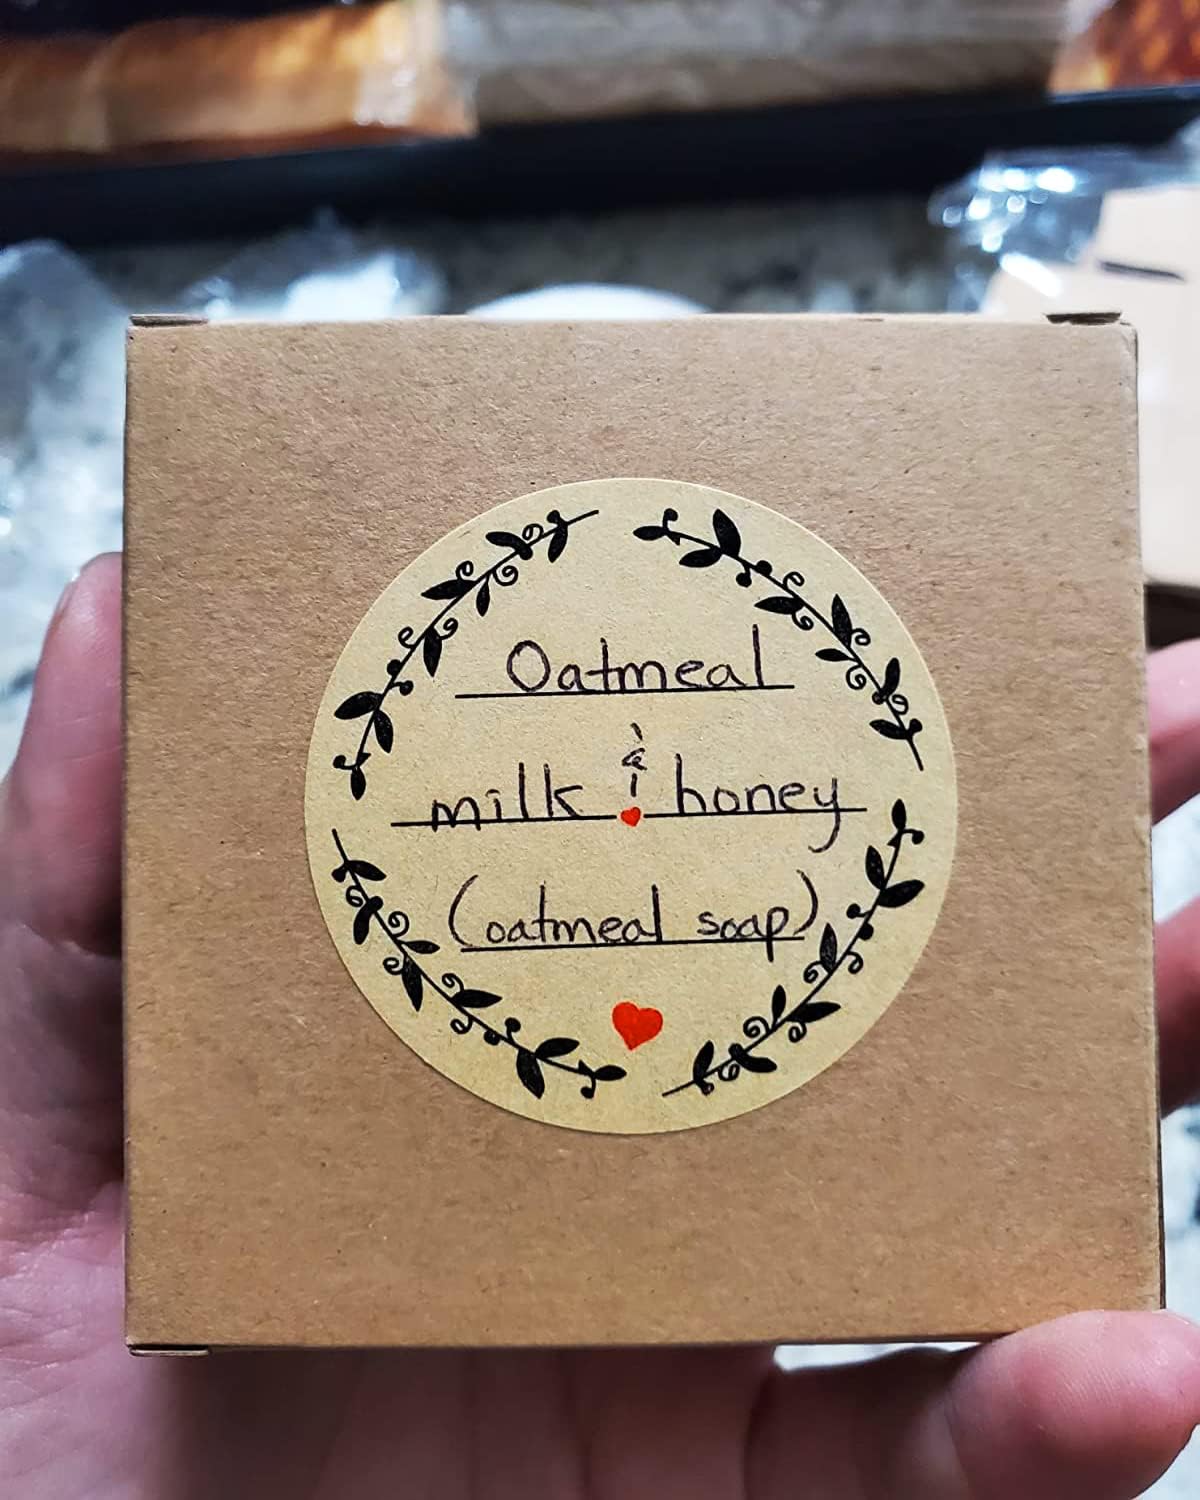 Oatmeal
milk & honey
(oatmeal soap)